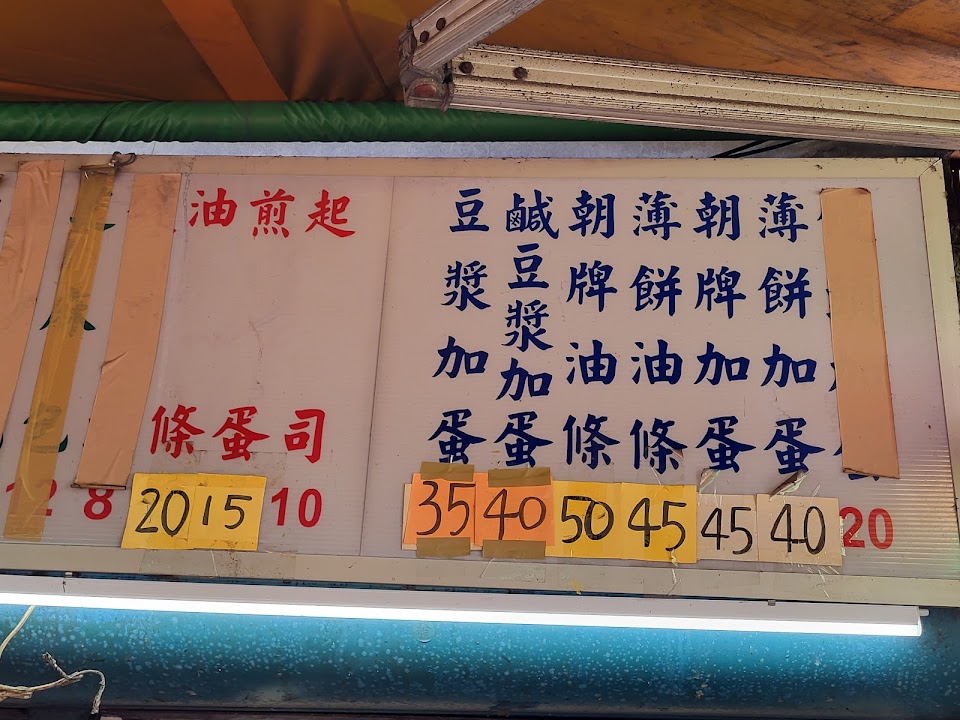 豆漿加蛋 35
鹹豆漿加蛋 40
朝牌油條 50
薄餅油條 45
朝牌加蛋 45
薄餅加蛋 40
20
起司 10
煎蛋 15
油條 20
8